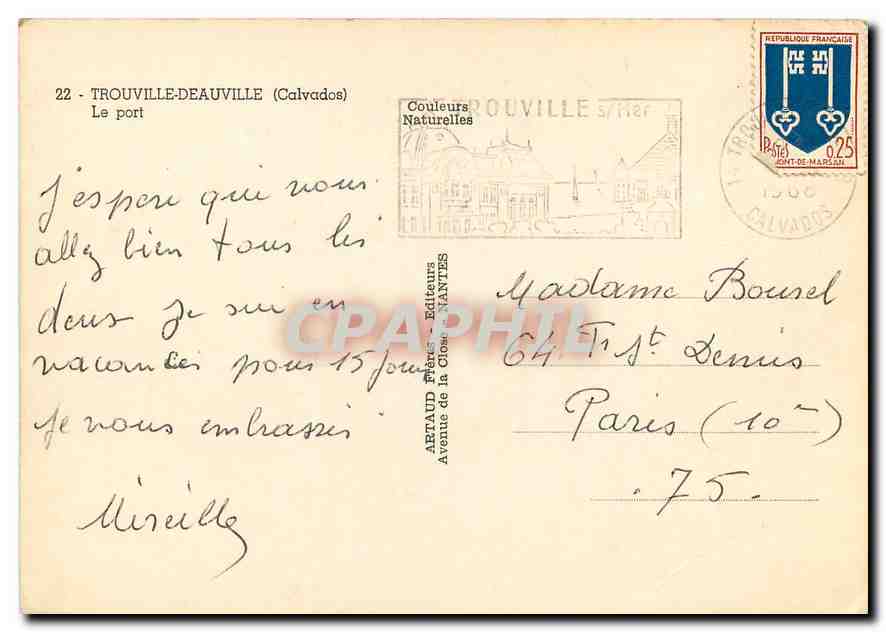 22 - TROUVILLE-DEAUVILLE (Calvados)
Le port
Couleurs
Naturelles
TROUVILLE s/Mer
REPUBLIQUE FRANÇAISE
POSTES 0.25
MONT-DE-MARSAN
14 TROU
CALVADOS
J'espere que vous
allez bien tous les
deux je sui en
vacances pour 15 jours
je vous embrasse
Mireille
ARTAUD Frères - Editeurs
Avenue de la Close - NANTES
Madame Boursel
64 Fg St Denis
Paris (10me)
.75.
CPAPHIL